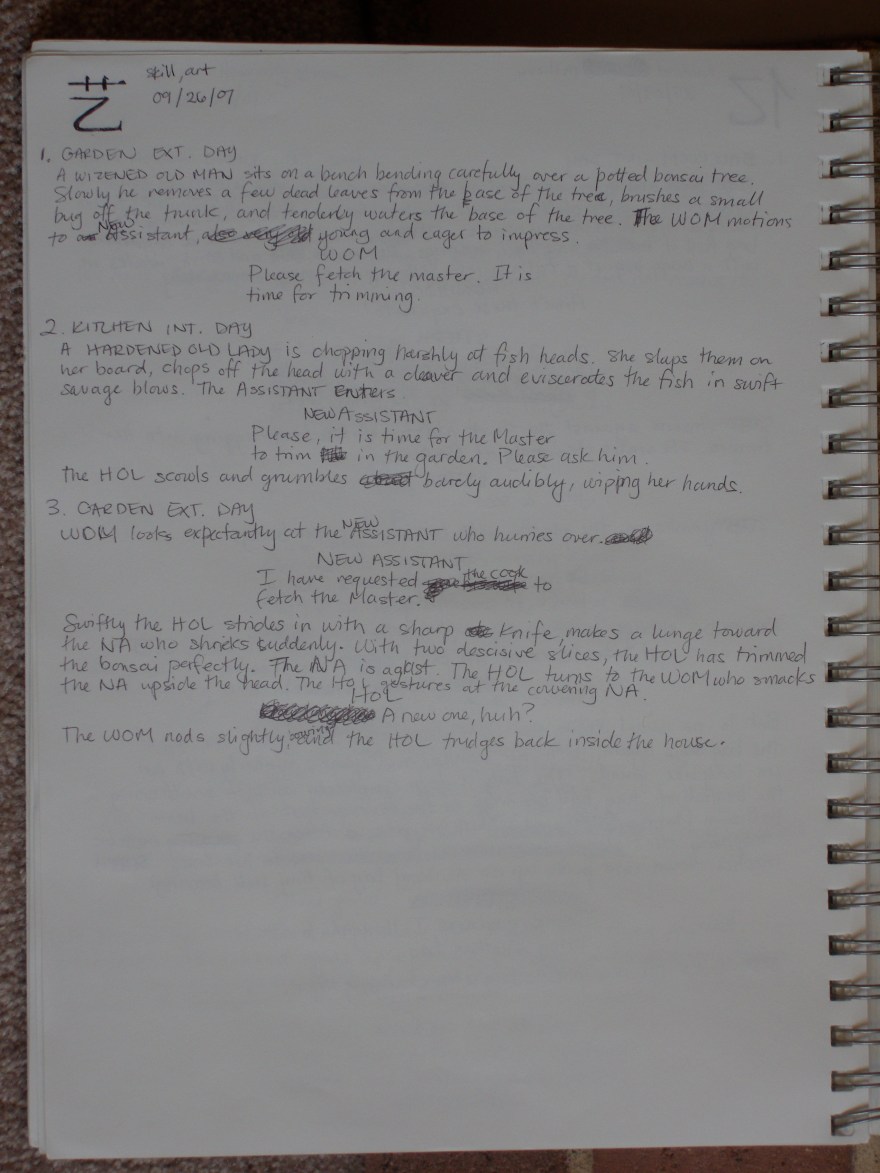 艺
skill, art
09/26/07
1. GARDEN EXT. DAY
A WIZENED OLD MAN sits on a bench bending carefully over a potted bonsai tree.
Slowly he removes a few dead leaves from the base of the tree, brushes a small
bug off the trunk, and tenderly waters the base of the tree. The WOM motions
to New Assistant, young and eager to impress.
WOM
Please fetch the master. It is
time for trimming.
2. KITCHEN INT. DAY
A HARDENED OLD LADY is chopping harshly at fish heads. She slaps them on
her board, chops off the head with a cleaver and eviscerates the fish in swift
savage blows. The ASSISTANT Enters.
NEW ASSISTANT
Please, it is time for the Master
to trim in the garden. Please ask him.
The HOL scowls and grumbles barely audibly, wiping her hands.
3. GARDEN EXT. DAY
WOM looks expectantly at the NEW ASSISTANT who hurries over.
NEW ASSISTANT
I have requested the cook to
fetch the Master.
Swiftly the HOL strides in with a sharp knife, makes a lunge toward
the NA who shrieks suddenly. With two descisive slices, the HOL has trimmed
the bonsai perfectly. The NA is agast. The HOL turns to the WOM who smacks
the NA upside the head. The HOL gestures at the cowering NA.
HOL
A new one, huh?
The WOM nods slightly, the HOL trudges back inside the house.